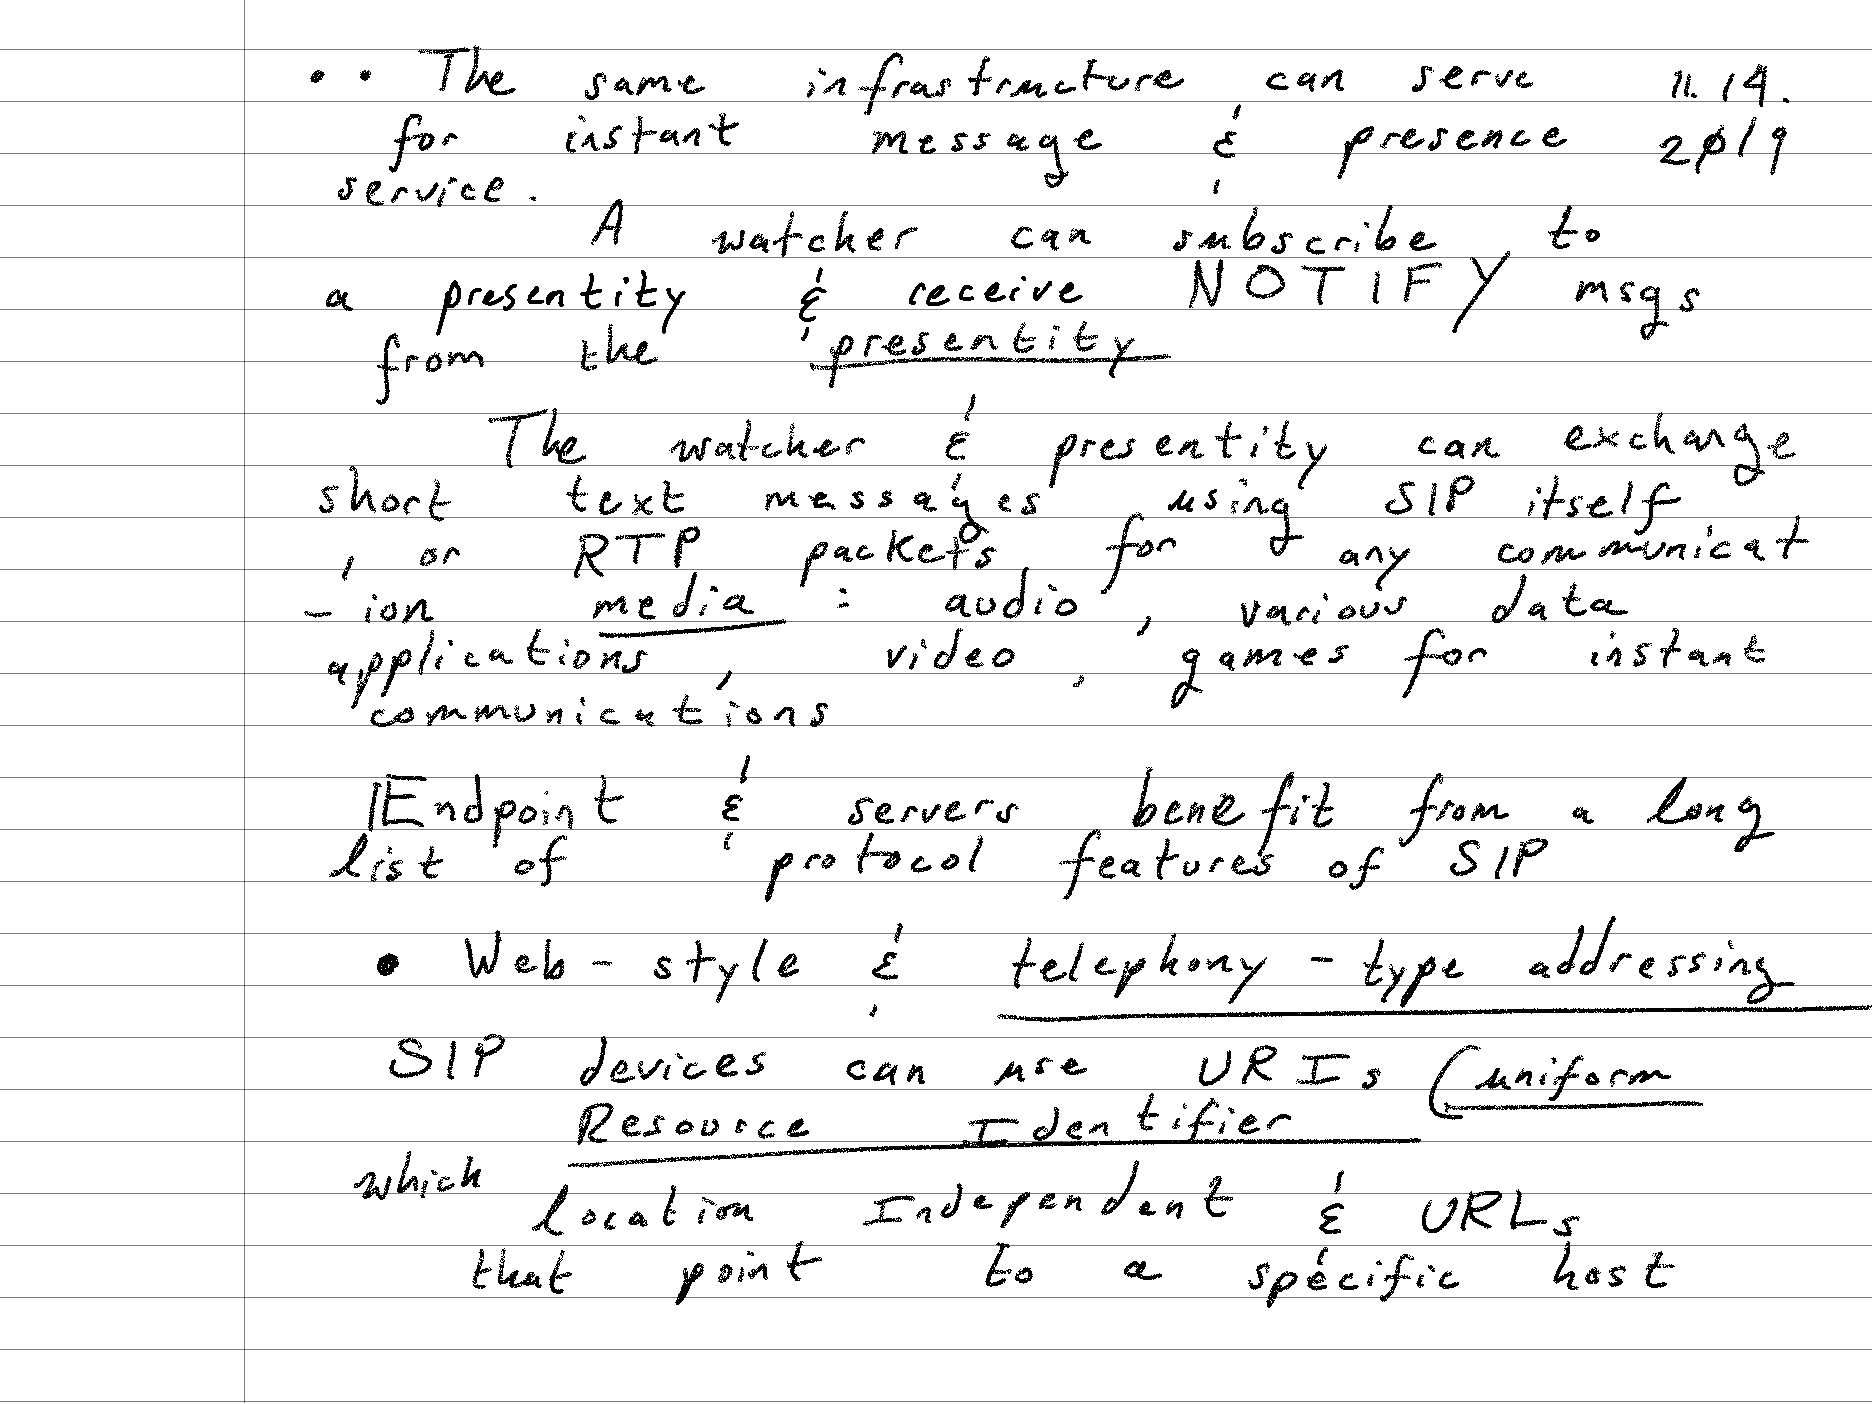 • • The same infrastructure can serve 11.14.
for instant message & presence 2019
service.
A watcher can subscribe to
a presentity & receive NOTIFY msgs
from the presentity
The watcher & presentity can exchange
short text messages using SIP itself
, or RTP packets for any communicat
- ion media : audio , various data
applications , video , games for instant
communications
Endpoint & servers benefit from a long
list of protocol features of SIP
• Web - style & telephony - type addressing
SIP devices can use URIs (uniform
Resource Identifier
which
location Independant & URLs
that point to a specific host